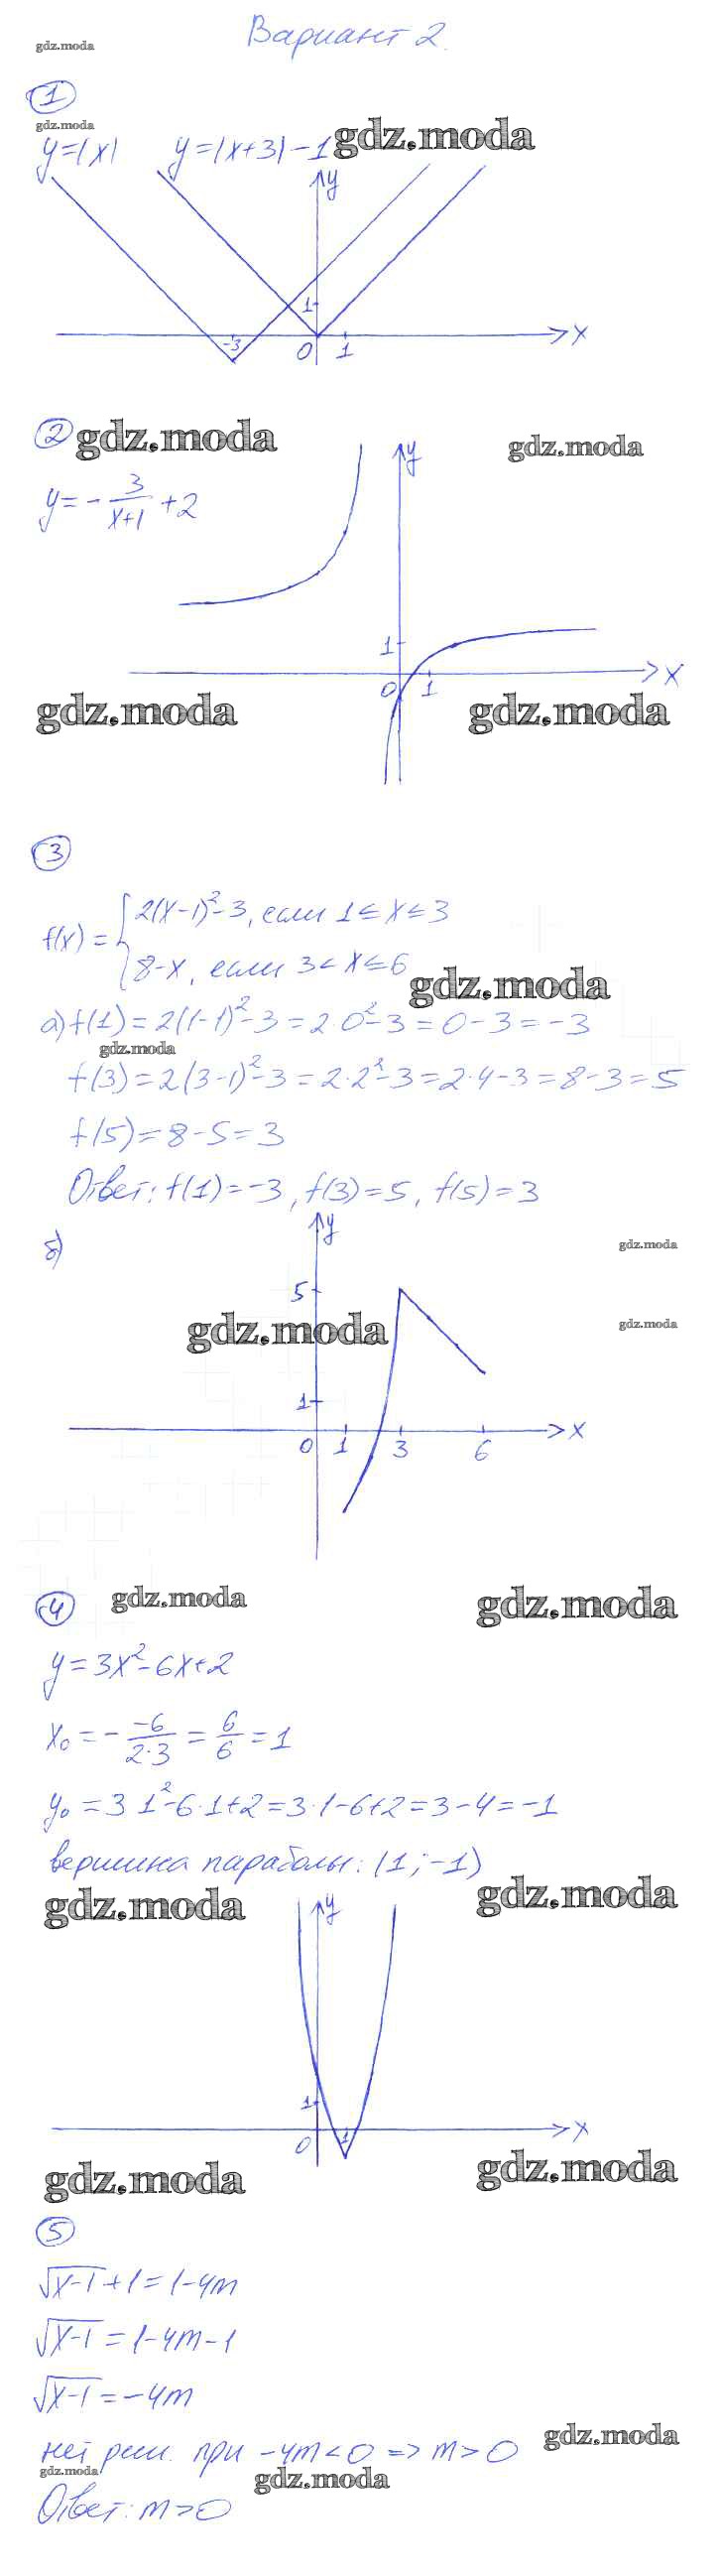 gdz.moda
Вариант 2.
1
gdz.moda
y=|x| y=|x+3|-1 gdz.moda
y
1
-3 0 1 x
2 gdz.moda gdz.moda
y
y=-3/(x+1)+2
1
0 1 x
gdz.moda gdz.moda
3
f(x)={2(x-1)²-3, если 1≤x≤3
8-x, если 3<x≤6
gdz.moda
а) f(1)=2(1-1)²-3=2·0²-3=0-3=-3
gdz.moda
f(3)=2(3-1)²-3=2·2²-3=2·4-3=8-3=5
f(5)=8-5=3
Ответ: f(1)=-3, f(3)=5, f(5)=3
б) y gdz.moda
5
gdz.moda gdz.moda
1
0 1 3 6 x
4 gdz.moda gdz.moda
y=3x²-6x+2
x₀=-(-6)/(2·3)=6/6=1
y₀=3·1²-6·1+2=3·1-6+2=3-4=-1
вершина параболы: (1;-1)
gdz.moda gdz.moda
y
1
0 1 x
gdz.moda gdz.moda
5
√(x-1)+1=1-4m
√(x-1)=1-4m-1
√(x-1)=-4m
нет реш. при -4m<0 => m>0 gdz.moda
gdz.moda gdz.moda
Ответ: m>0